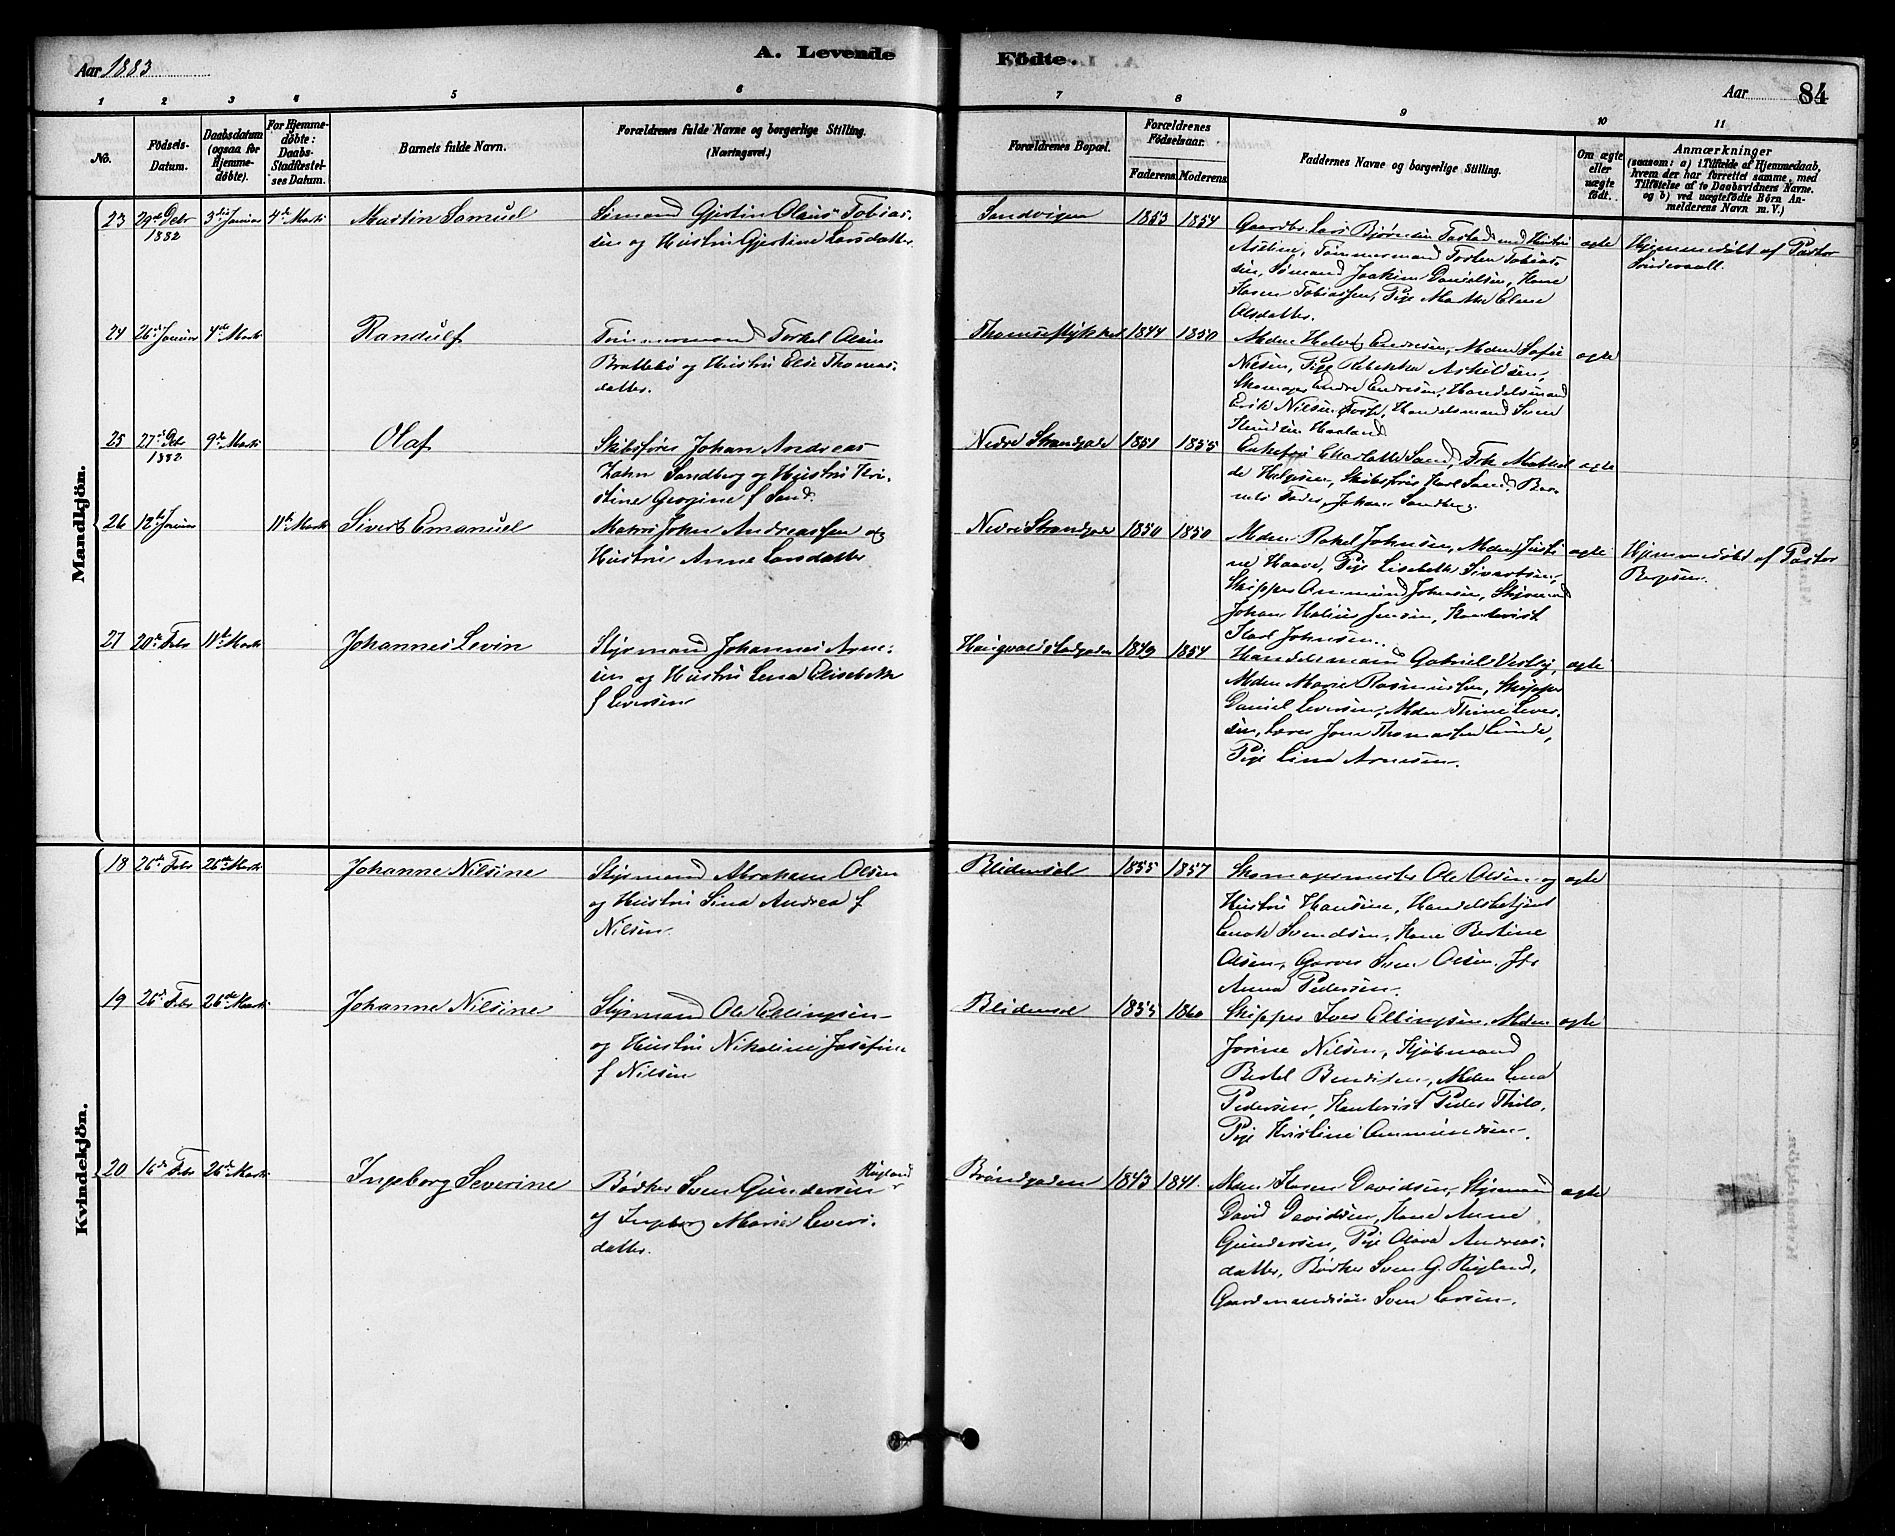 Aar 1883
A. Levende
Födte.
Aar 84
1 2 3 4 5 6 7 8 9 10 11
No.
Födsels-
Datum.
Daabsdatum
(ogsaa for
Hjemme-
döbte).
For Hjemme-
döbte:
Daabs-
Stadfæstel-
ses Datum.
Barnets fulde Navn.
Forældrenes fulde Navne og borgerlige Stilling.
(Næringsvei.)
Forældrenes Bopæl.
Forældrenes
Födselsaar.
Faderens. Moderens.
Faddernes Navne og borgerlige Stilling.
Om ægte
eller
uægte
födt.
Anmærkninger
(saasom: a) i Tilfælde af Hjemmedaab,
hvem der har forrettet samme, med
Tilföielse af to Daabsvidners Navne.
og b) ved uægtefödte Börn An-
melderens Navn m. V.)
Mandkjön.
23 29de Dcbr 1882 3die Januar 4de Marts Martin Samuel
Sömand Gjertin Olaus Tobias-
sen og Hustru Gjertine Larsdatter
Sandvigen 1853 1854
Gaardbr. Lars Bjørnsen Tastad med Hustru
Tømmermand Torsten Tobias-
sen, Sømand Joakim Danielsen, Kone
Karen Tobiassen, Pige Marthe Eline
Olsdatter.
ægte
Hjemmedøbt af Pastor
24 26de Januar 4de Marts Randulf
Tömmermand Torkel Olsen
Brattebø og Hustru Else Thomas-
datter.
1844 1850
Mdm Helvig Endresen, Mdm Sofie
Nilsen, Pige Rebekka Askildsen,
Skomager Endre Endresen, Handelsmand
Erik Nilsen, Handelsmand Sven
Knudsen Haaland
ægte
25 27de Dcbr 1882 9de Marts Olaf
Skibsfører Johan Andreas
Zahn Sandberg og Hustru Kri-
stine Georgine f Sand.
Nedre Strandgade 1851 1855
Enkefru Charlotte Sand, Frk Mathil-
de Helgesen, Skibsfører Karl Sand, Bar-
nets Fader, Johan Sandberg.
ægte
26 12te Januar 11te Marts Sivert Emanuel
Matros John Andreassen og
Hustru Anne Larsdatter
Nedre Strandgade 1850 1850
Mdm Rakel Johnsen, Mdm Justi-
ne Haave, Pige Lisebeth Sivertsen,
Skipper Ommund Johnsen, Styrmand
Johan Jensen, Kontorist
Karl Johnsen.
ægte
Hjemmedøbt af Pastor
Bergesen.
27 20de Febr 11te Marts Johannes Levin
Styrmand Johannes Arne-
sen og Hustru Lena Elisebeth
f Leversen
1849 1854
Handelsmand Gabriel Vestby,
Mdm Marie Rasmussen, Skipper
Daniel Leversen, Mdm Thine Lever-
sen, Lærer Jone Thomassen Lunde,
Pige Lina Arnesen.
ægte
Kvindekjön.
18 26de Febr 26de Marts Johanne Nilsine
Styrmand Abraham Olsen
og Hustru Sina Andrea f
Nilsen.
Blidensol 1855 1857
Skomagermester Ole Olsen og
Hustru Hansine, Handelsbetjent
Enok Svendsen, Kone Bertine
Olsen, Garver Sven Olsen, Jfr
Anna Pedersen.
ægte
19 26de Febr 26de Marts Johanne Nilsine
Styrmand Ole Ellingsen
og Hustru Nikoline Josefine
f Nilsen
Blidensol 1855 1860
Skipper Iver Ellingsen, Mdm
Jorine Nilsen, Kjøbmand
Bertel Bendixen, Mdm Lena
Pedersen, Kontorist Peder Thilo,
Pige Kristine Ommundsen.
ægte
20 16de Febr 26de Marts Ingeborg Severine
Rügland
Bødker Sven Gundersen
og Ingeborg Marie Levers-
datter.
Brøndgaden 1843 1841.
Mdm Karen Davidsen, Styrmand
David Davidsen, Kone Anne
Gundersen, Pige Olava Andreas-
datter, Bødker Sven G. Rügland,
Gaardmandssøn Sven Larsen.
ægte